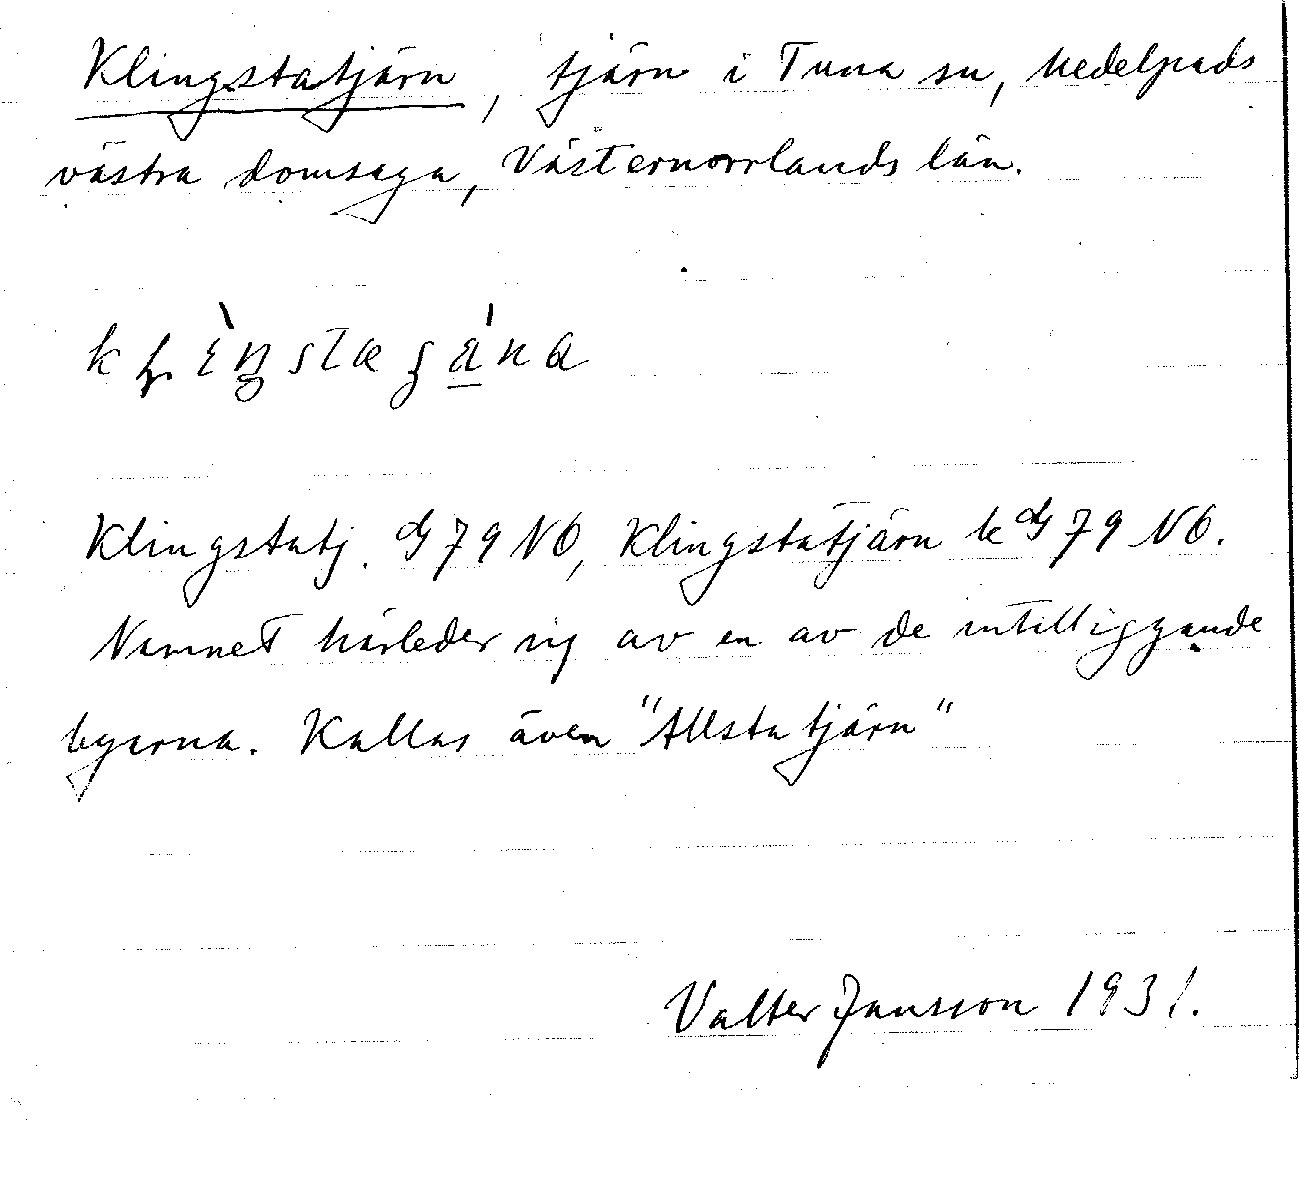 Klingstatjärn, tjärn i Tuna sn, Medelpads
västra domsaga, Västernorrlands län.
Klingstatj. G 79 NO, Klingstatjärn k G 79 NO.
Namnet härleder sig av en av de intilliggande
byarna. Kallas även "Allstatjärn"
Valter Jansson 1931.